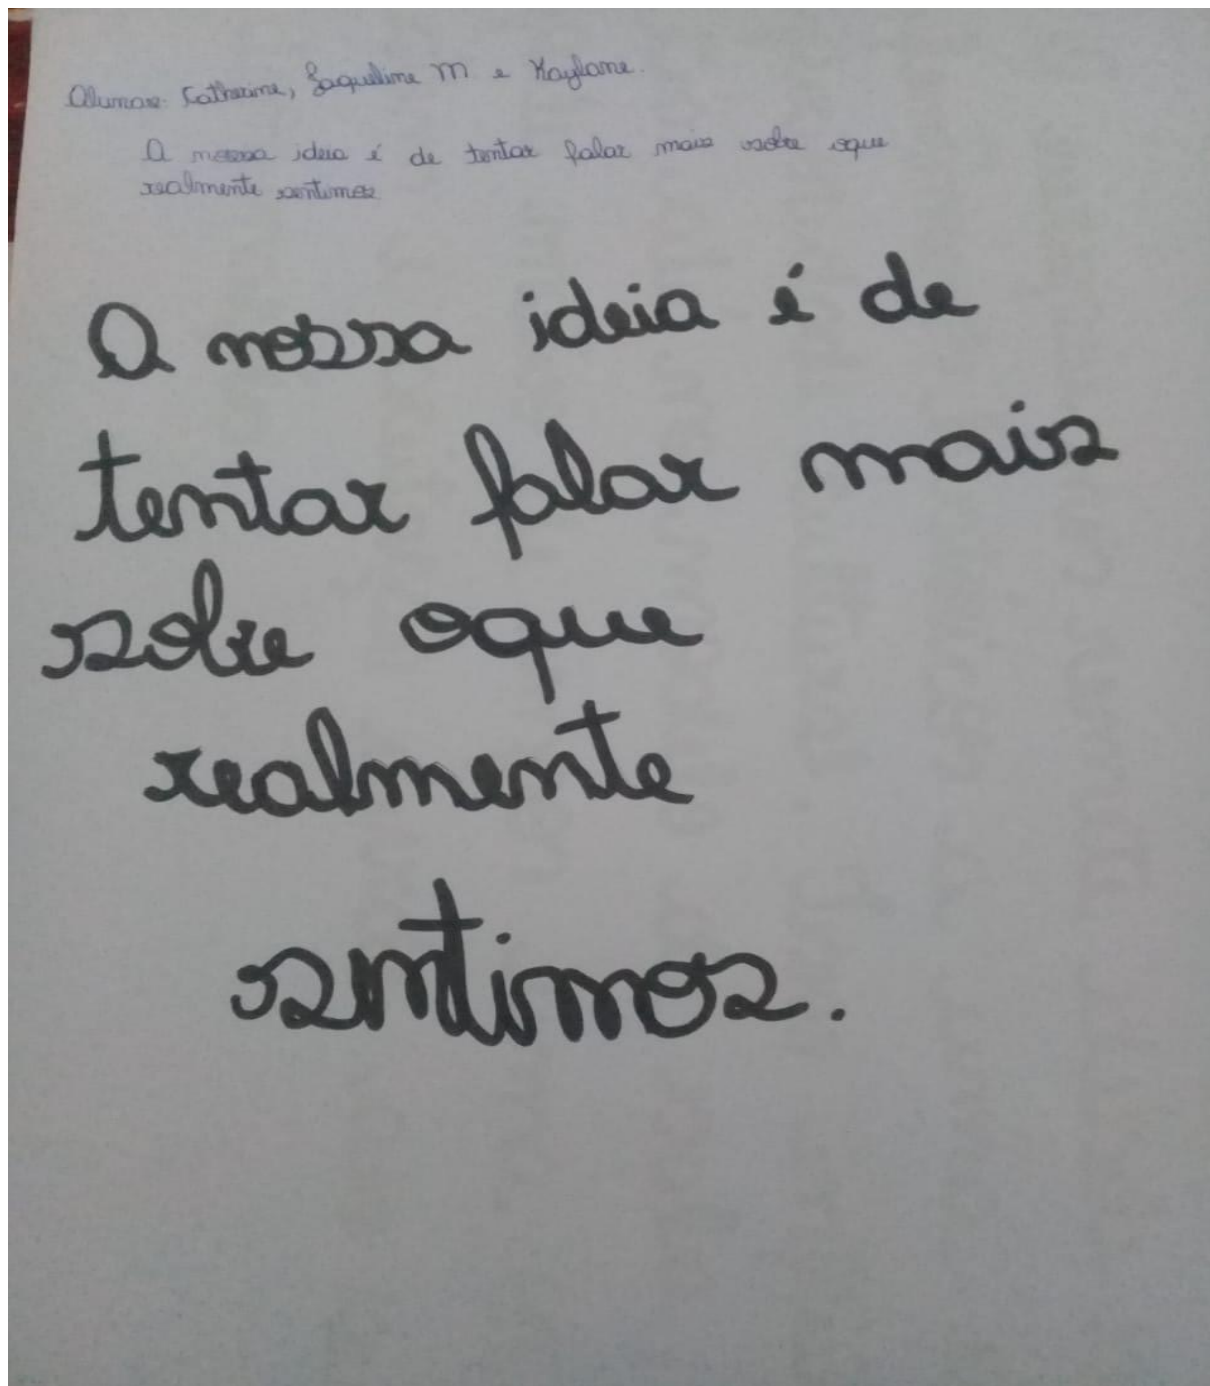 Alunas: Catherine, Jaqueline M e Kaylane.
A nossa ideia é de tentar falar mais sobre oque
realmente sentimos
A nossa ideia é de
tentar falar mais
sobre oque
realmente
sentimos.